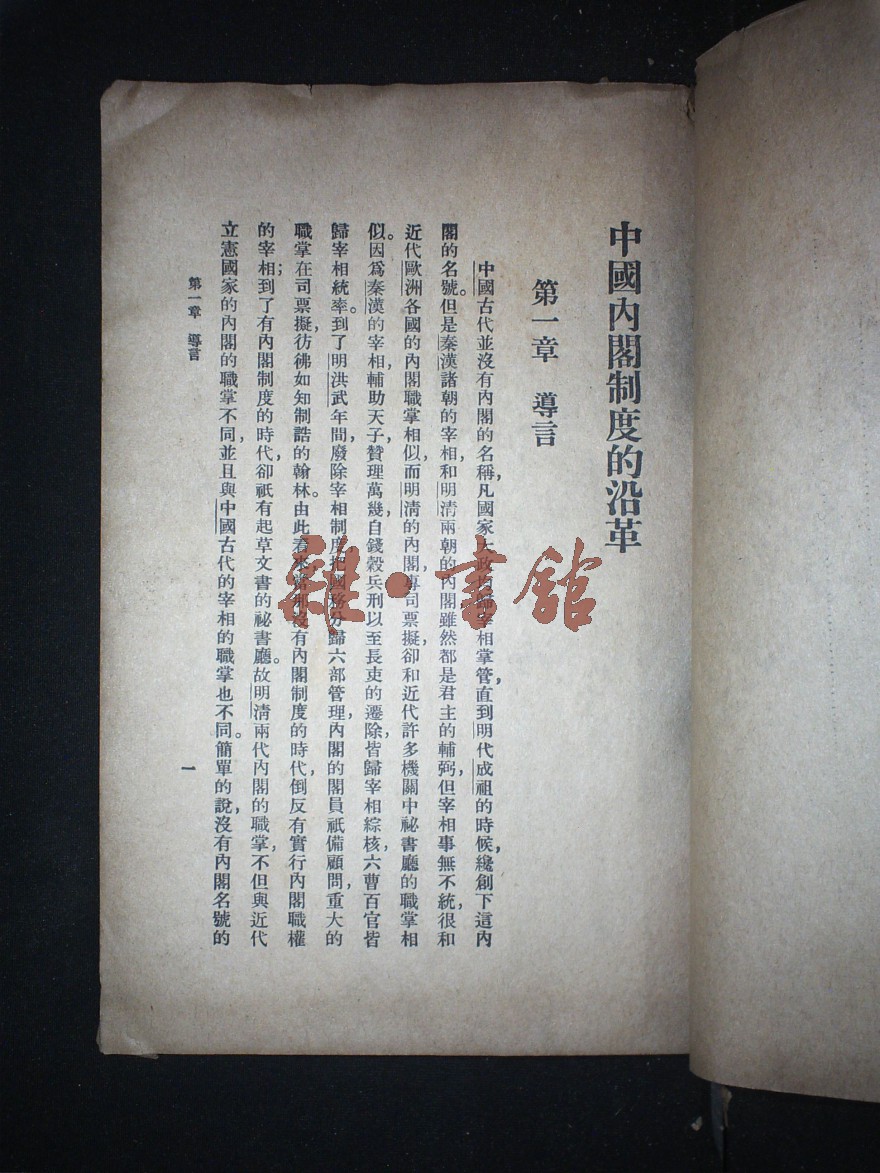 中國內閣制度的沿革
第一章 導言
中國古代並沒有內閣的名稱，凡國家大政均歸宰相掌管，直到明代成祖的時候，纔創下這內
閣的名號。但是秦漢諸朝的宰相，和明清兩朝的內閣，雖然都是君主的輔弼，但宰相事無不統，很和
近代歐洲各國的內閣職掌相似，而明清的內閣，專司票擬，卻和近代許多機關中祕書廳的職掌相
似。因爲秦漢的宰相，輔助天子，贊理萬幾，自錢穀兵刑以至長吏的遷除，皆歸宰相綜核，六曹百官皆
歸宰相統率。到了明洪武年間，廢除宰相制度，把國務分歸六部管理，內閣的閣員，祇備顧問，重大的
職掌在司票擬，彷彿如知制誥的翰林。由此看來，那沒有內閣制度的時代，倒反有實行內閣職權
的宰相；到了有內閣制度的時代，卻祇有起草文書的祕書廳。故明清兩代內閣的職掌，不但與近代
立憲國家的內閣的職掌不同，並且與中國古代的宰相的職掌也不同。簡單的說，沒有內閣名號的
第一章 導言
一
雜·書館